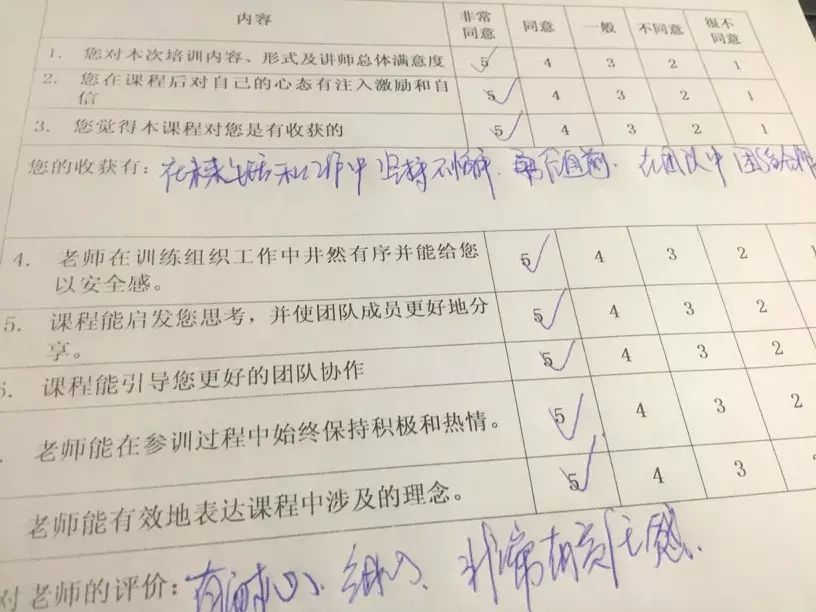 内容 非常同意 同意 一般 不同意 很不同意
1. 您对本次培训内容、形式及讲师总体满意度 5 4 3 2 1
2. 您在课程后对自己的心态有注入激励和自
信 5 4 3 2 1
3. 您觉得本课程对您是有收获的 5 4 3 2 1
您的收获有：在未来生活和工作中坚持不懈，勇往直前．在团队中团结合作
4. 老师在训练组织工作中井然有序并能给您
以安全感。 5 4 3 2 1
5. 课程能启发您思考，并使团队成员更好地分
享。 5 4 3 2
6. 课程能引导您更好的团队协作 5 4 3 2
老师能在参训过程中始终保持积极和热情。 5 4 3 2
老师能有效地表达课程中涉及的理念。 5 4 3
对老师的评价：有耐心、细心、非常有责任感．